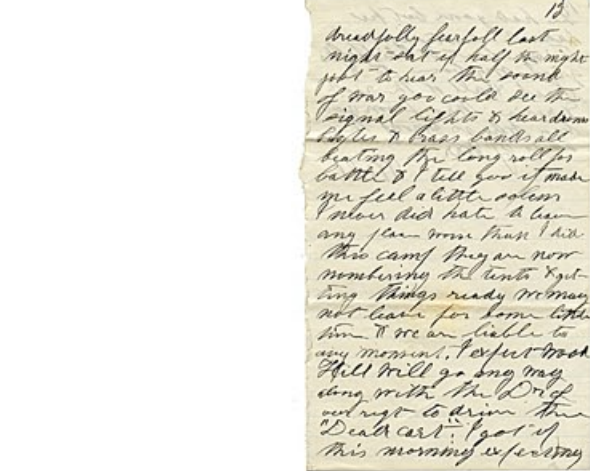 13
dreadfully fearfull last
night sat up half the night
just to hear the sound
of war you could see the
signal lights & hear drums
bugles & brass bands all
beating the long roll for
battle & I tell you it made
me feel a little solem
I never did hate to leave
any place worse than I did
this camp they are now
numbering the tents & get
ting things ready we may
not leave for some little
time & we are liable to
any moment. I expect
Hill will go any way
along with the Drs of
our regt to drive the
"Dead cart". I got up
this morning expecting